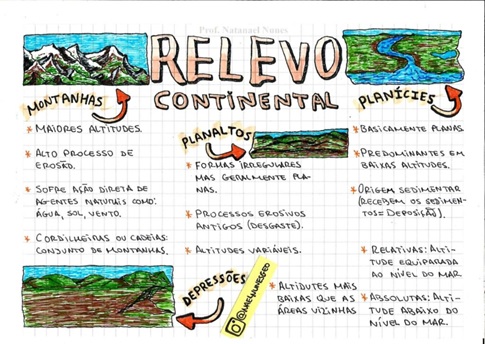 Prof. Natanael Nunes
RELEVO
CONTINENTAL
MONTANHAS
* MAIORES ALTITUDES.
* ALTO PROCESSO DE
EROSÃO.
* SOFRE AÇÃO DIRETA DE
AGENTES NATURAIS COMO:
ÁGUA, SOL, VENTO.
* CORDILHEIRAS OU CADEIAS:
CONJUNTO DE MONTANHAS.
PLANALTOS
* FORMAS IRREGULARES
MAS GERALMENTE PLA-
NAS.
* PROCESSOS EROSIVOS
ANTIGOS (DESGASTE).
* ALTITUDES VARIÁVEIS.
PLANÍCIES
* BASICAMENTE PLANAS.
* PREDOMINANTES EM
BAIXAS ALTITUDES.
* ORIGEM SEDIMENTAR
(RECEBEM OS SEDIMEN-
TOS = DEPOSIÇÃO).
DEPRESSÕES
* ALTIDUTES MAIS
BAIXAS QUE AS
ÁREAS VIZINHAS
* RELATIVAS: ALTI-
TUDE EQUIPARADA
AO NÍVEL DO MAR
* ABSOLUTAS: ALTI-
TUDE ABAIXO DO
NÍVEL DO MAR.